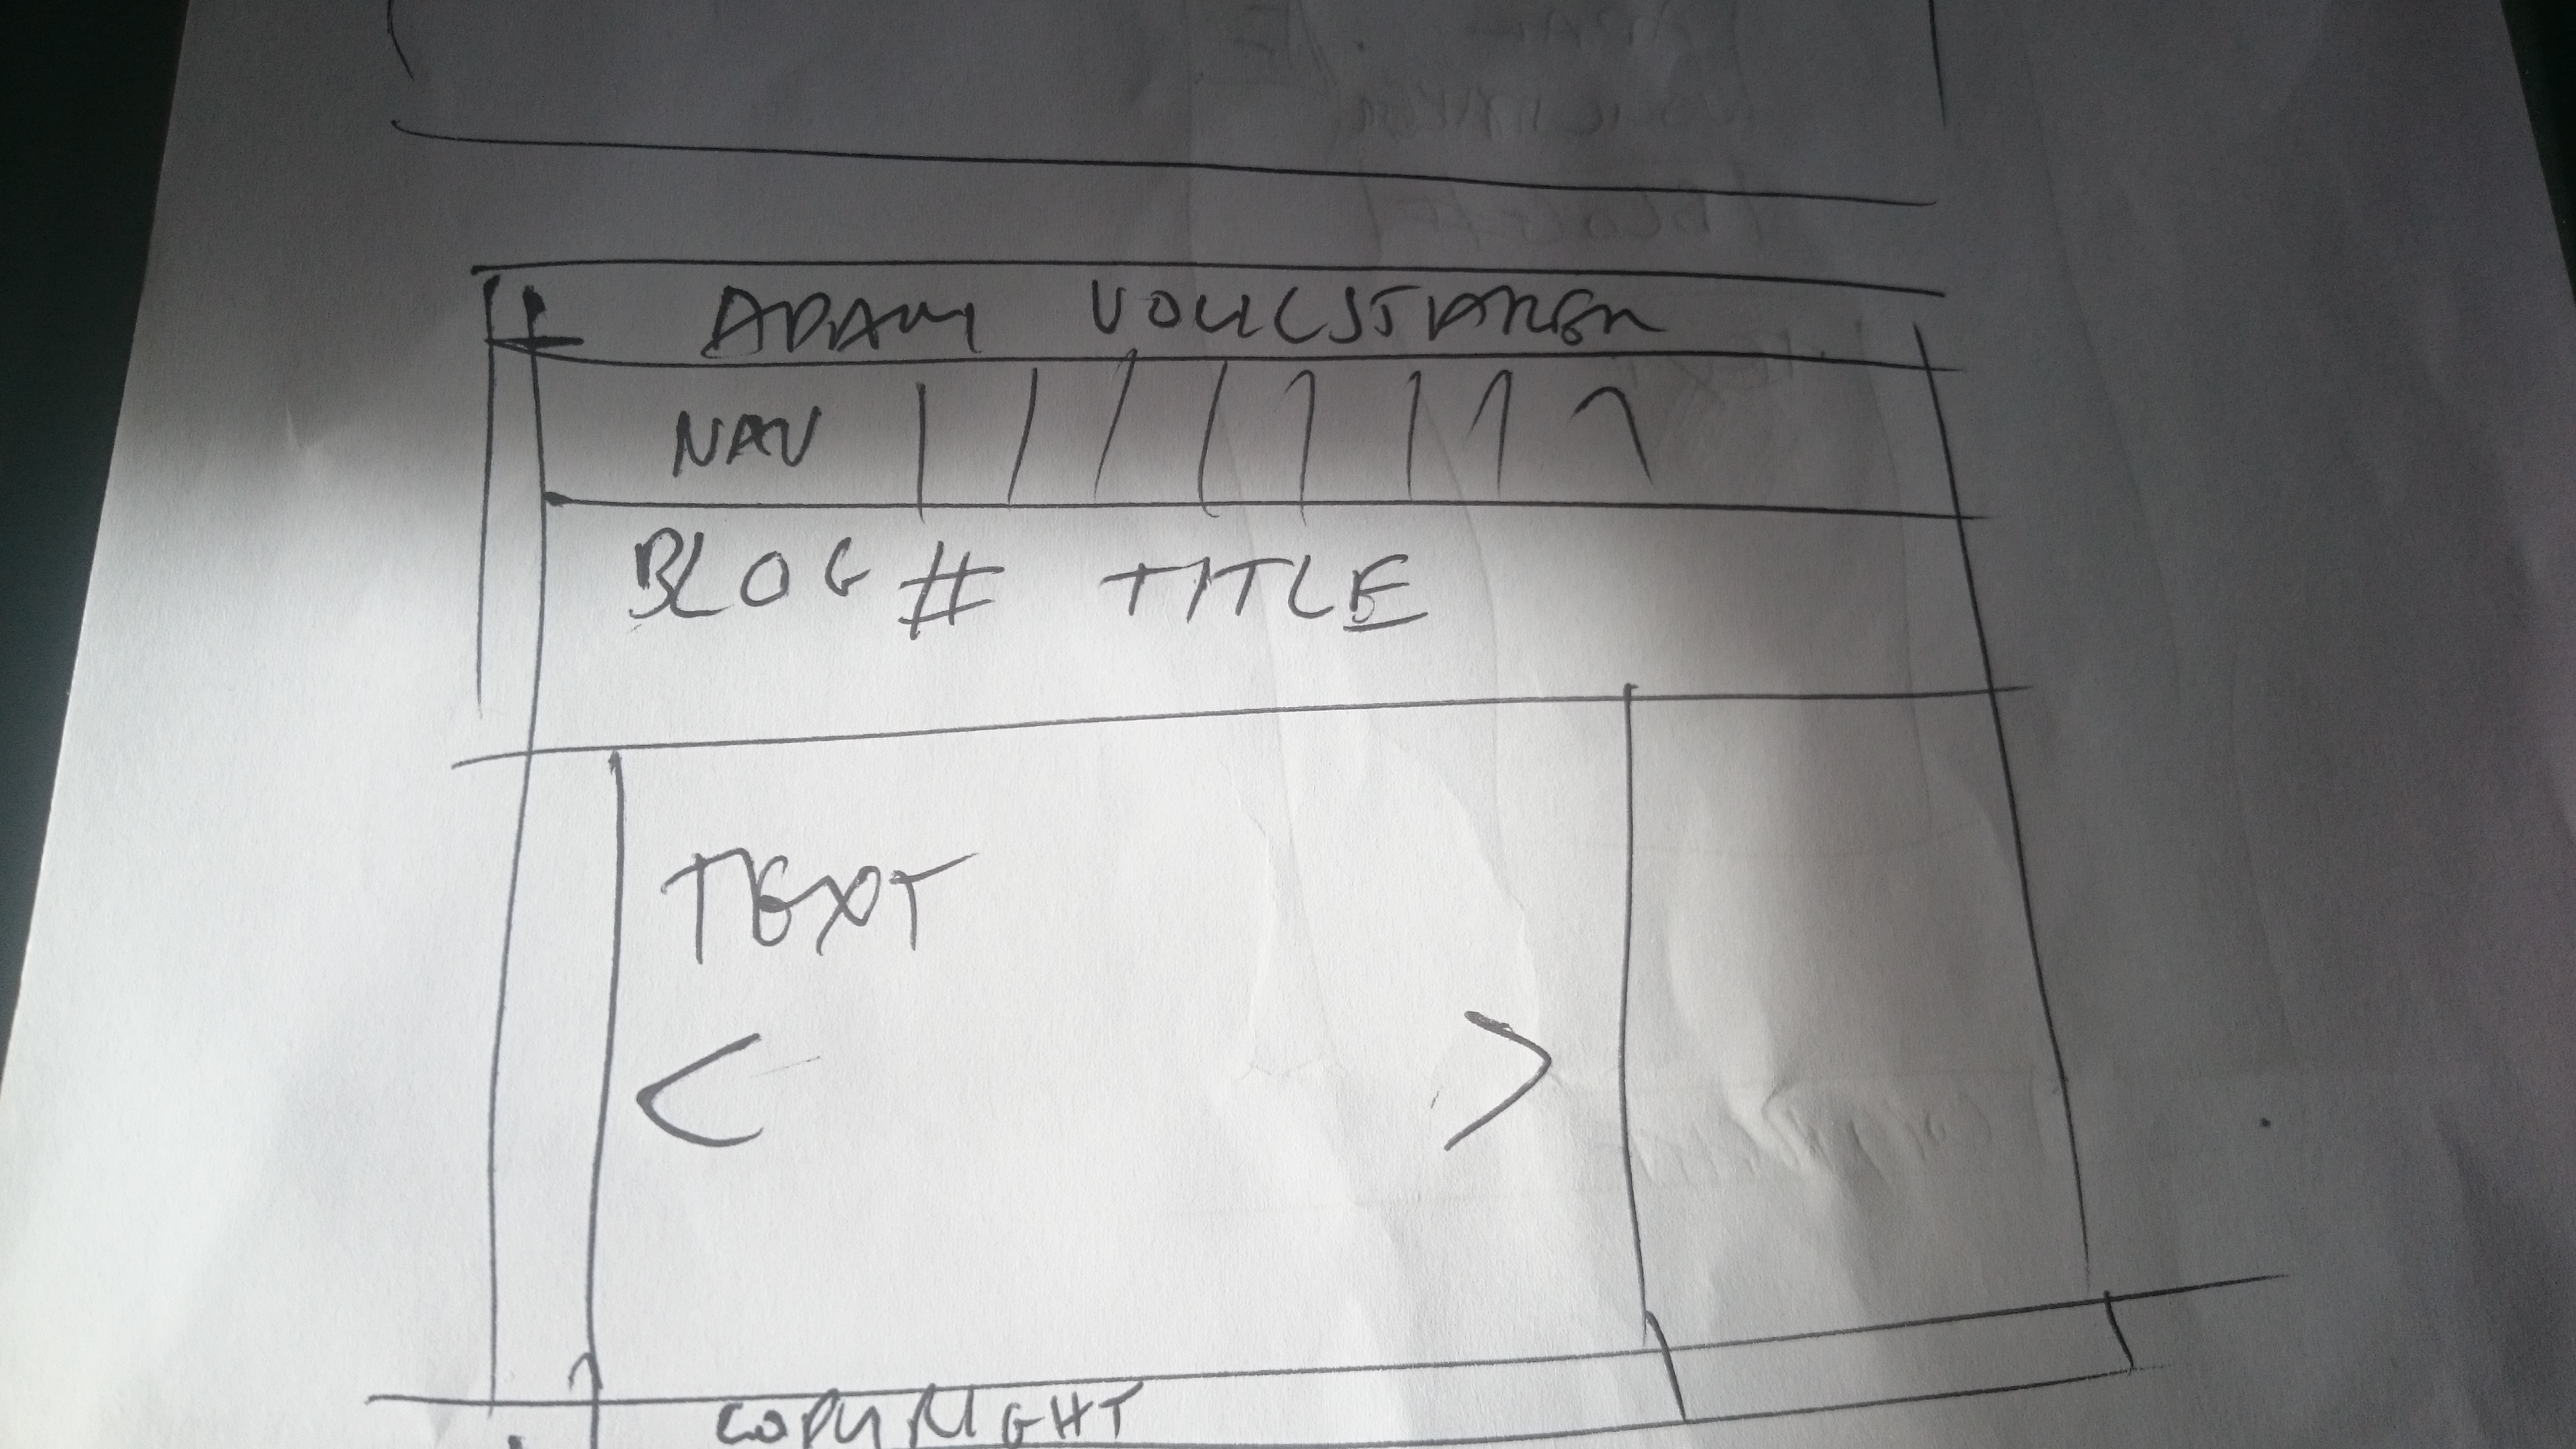 ADAM VOLLCSTAREK
NAV
BLOG # TITLE
TEXT
< >
COPYRIGHT